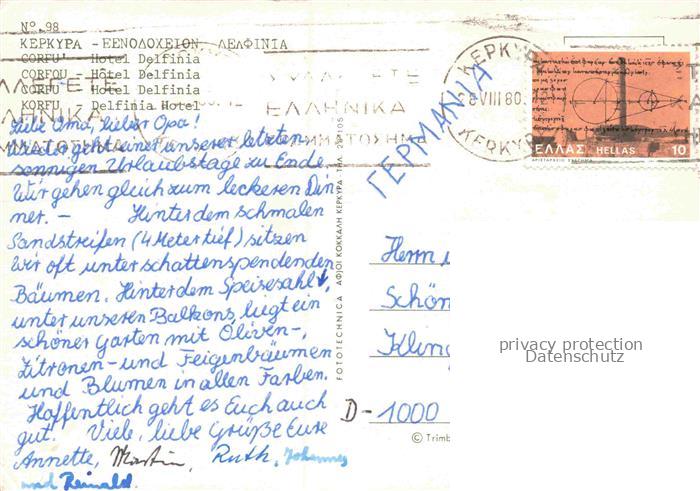 Nº 98
ΚΕΡΚΥΡΑ - ΞΕΝΟΔΟΧΕΙΟΝ ΔΕΛΦΙΝΙΑ
CORFU' - Hotel Delfinia
CORFOU - Hôtel Delfinia
CORFU - Hotel Delfinia
KORFU - Delfinia Hotel
Liebe Oma, lieber Opa!
Wieder geht einer unserer letzten
sonnigen Urlaubstage zu Ende.
Wir gehen gleich zum leckeren Din
ner. – Hinter dem schmalen
Sandstreifen (4 Meter tief) sitzen
wir oft unter schattenspendenden
Bäumen. Hinter dem Speisesahl,
unter unseren Balkons, liegt ein
schöner Garten mit Oliven-,
Zitronen- und Feigenbäumen
und Blumen in allen Farben.
Hoffentlich geht es Euch auch
gut. Viele, liebe Grüße Eure
Annette, Martin, Ruth, Johannes
und Reinald.
FOTOTECHNICA ΑΦΟΙ ΚΟΚΚΑΛΗ ΚΕΡΚΥΡΑ ΤΗΛ.
ΕΛΛΗΝΙΚΑ
ΚΕΡΚΥΡΑ
8 VIII 80
ΚΕΡΚΥΡΑ
ΓΕΡΜΑΝΙΑ
ΕΛΛΑΣ HELLAS 10
Herrn
Schön
Kling
D-1000
© Trimb
privacy protection
Datenschutz